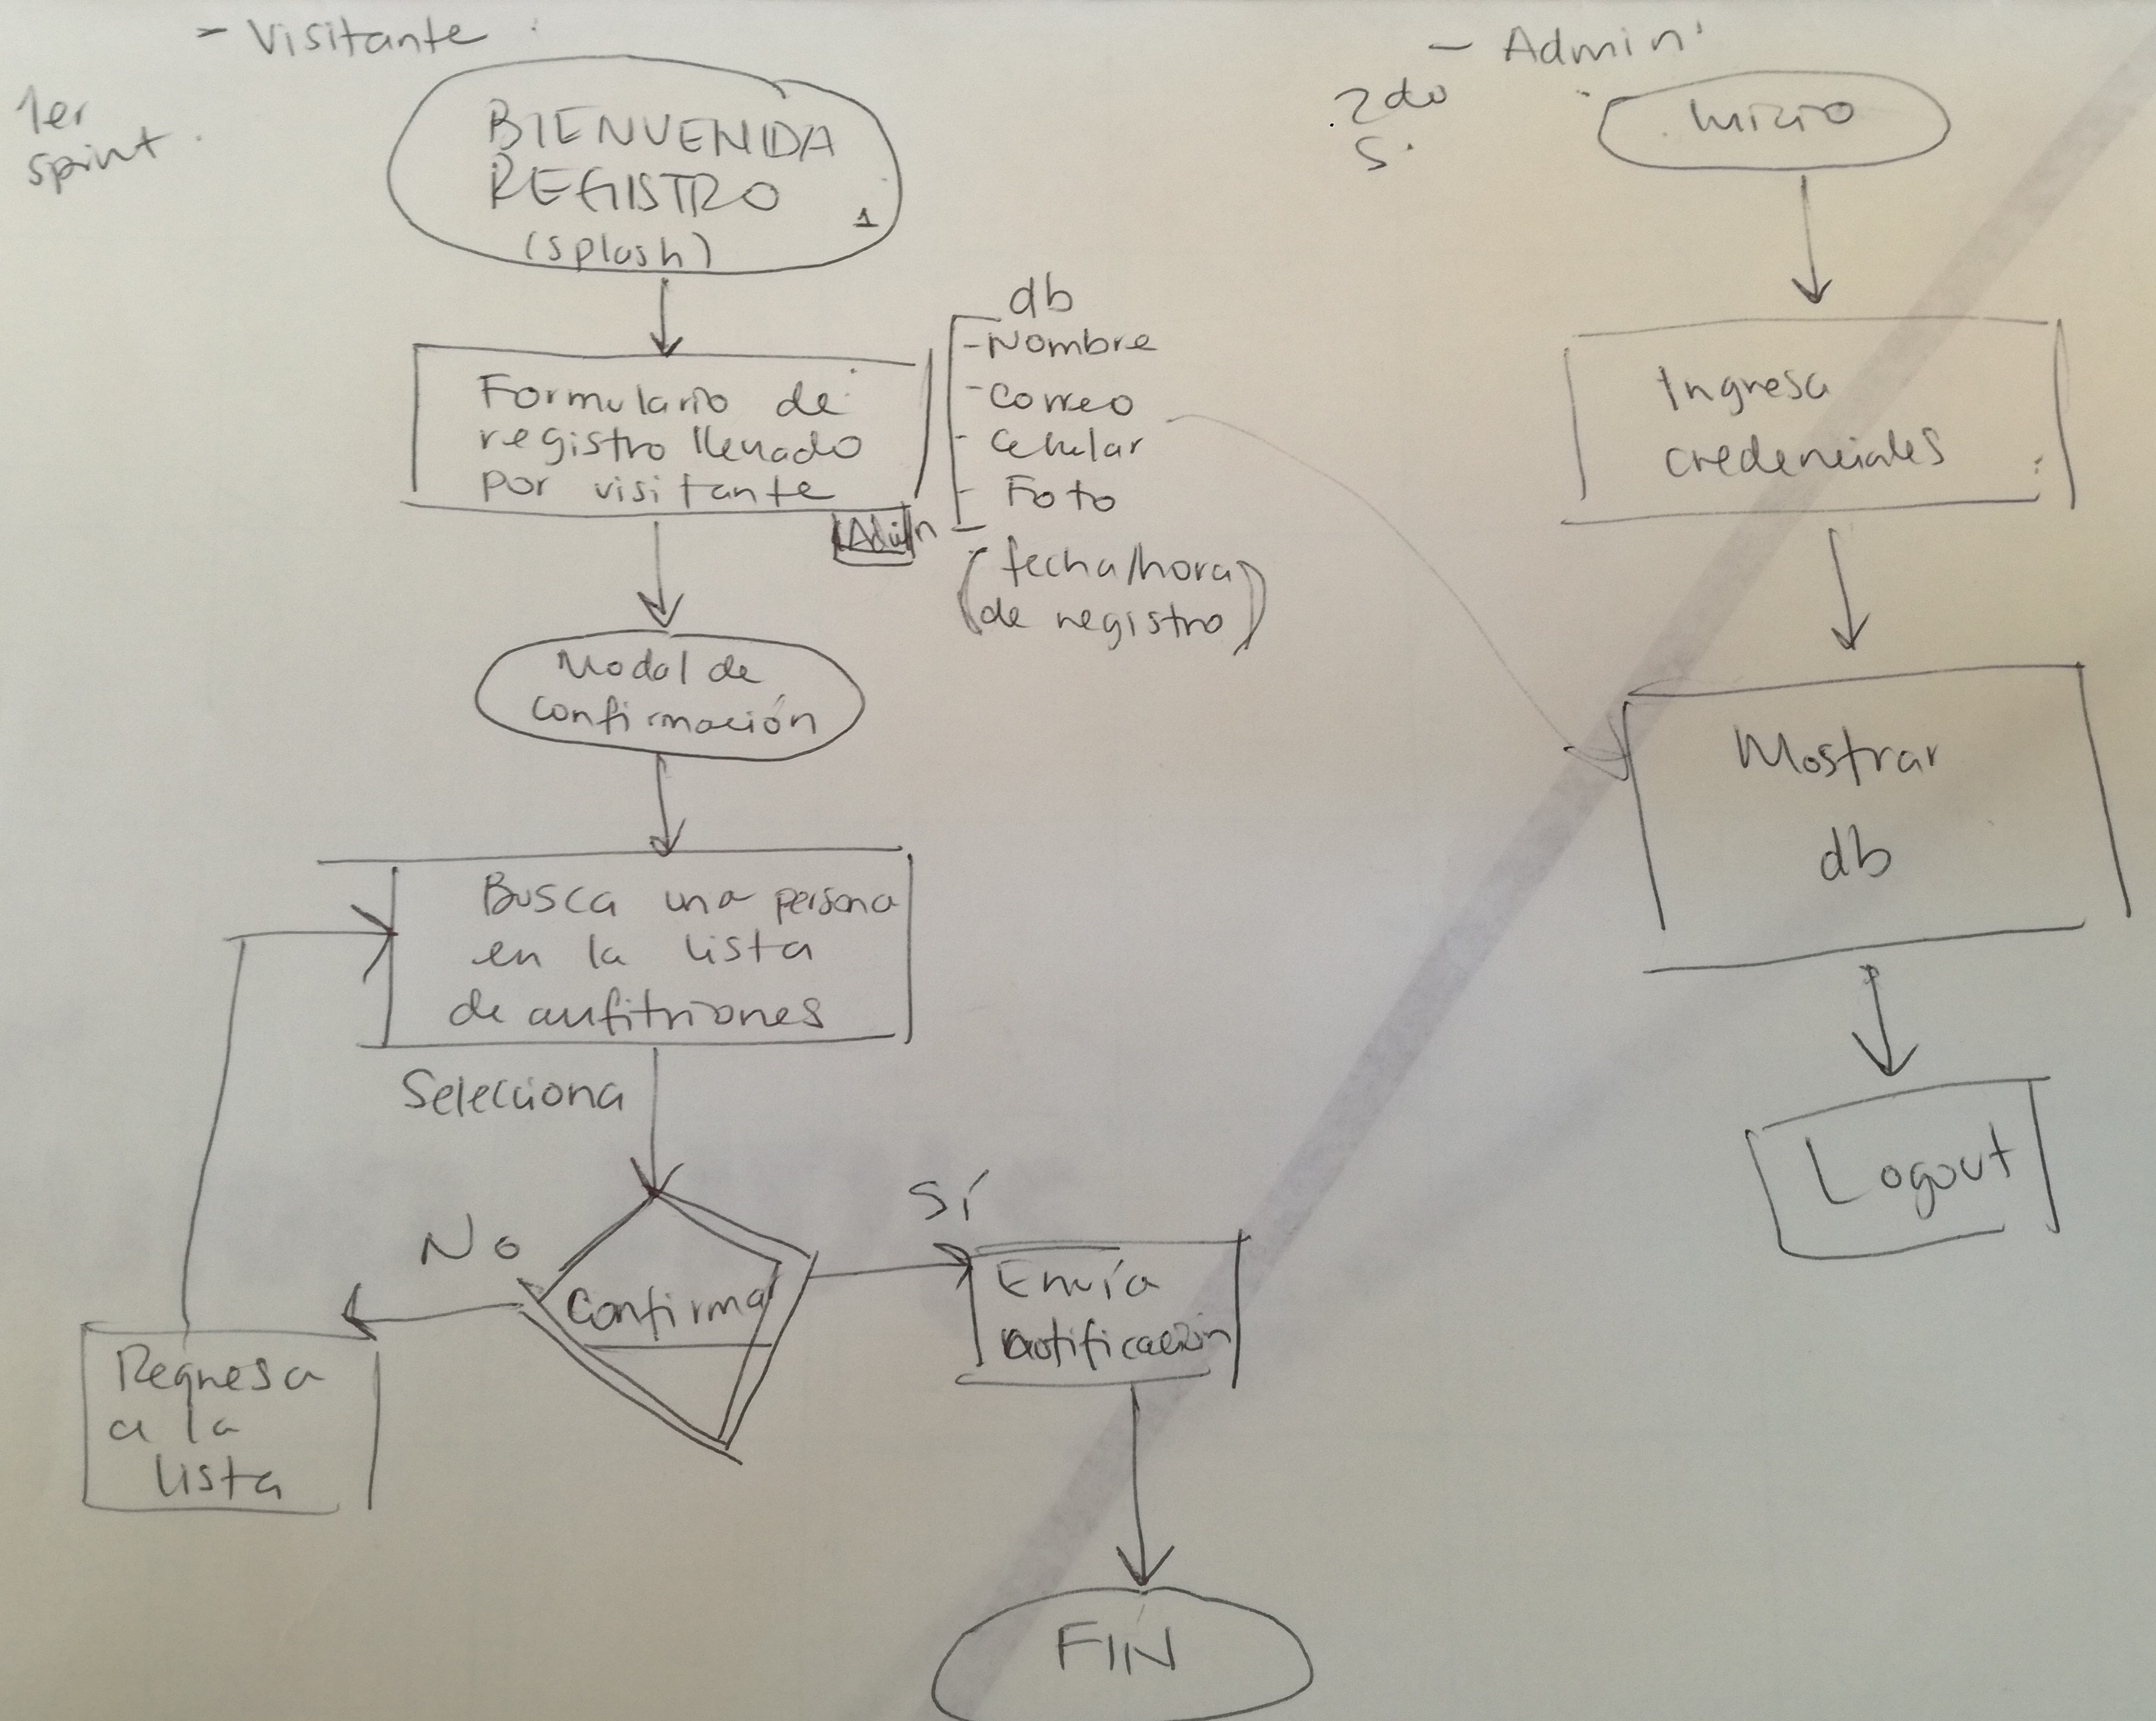 - Visitante
1er
sprint
BIENVENIDA
REGISTRO
(splash)
1
Formulario de
registro llenado
por visitante
Admin
db
- Nombre
- Correo
- Celular
- Foto
(fecha/hora
de registro)
Modal de
confirmación
Busca una persona
en la lista
de anfitriones
Selecciona
No
Confirma
Sí
Regresa
a la
lista
Envía
notificación
FIN
- Admin
2do
S.
Inicio
Ingresa
credenciales
Mostrar
db
Logout